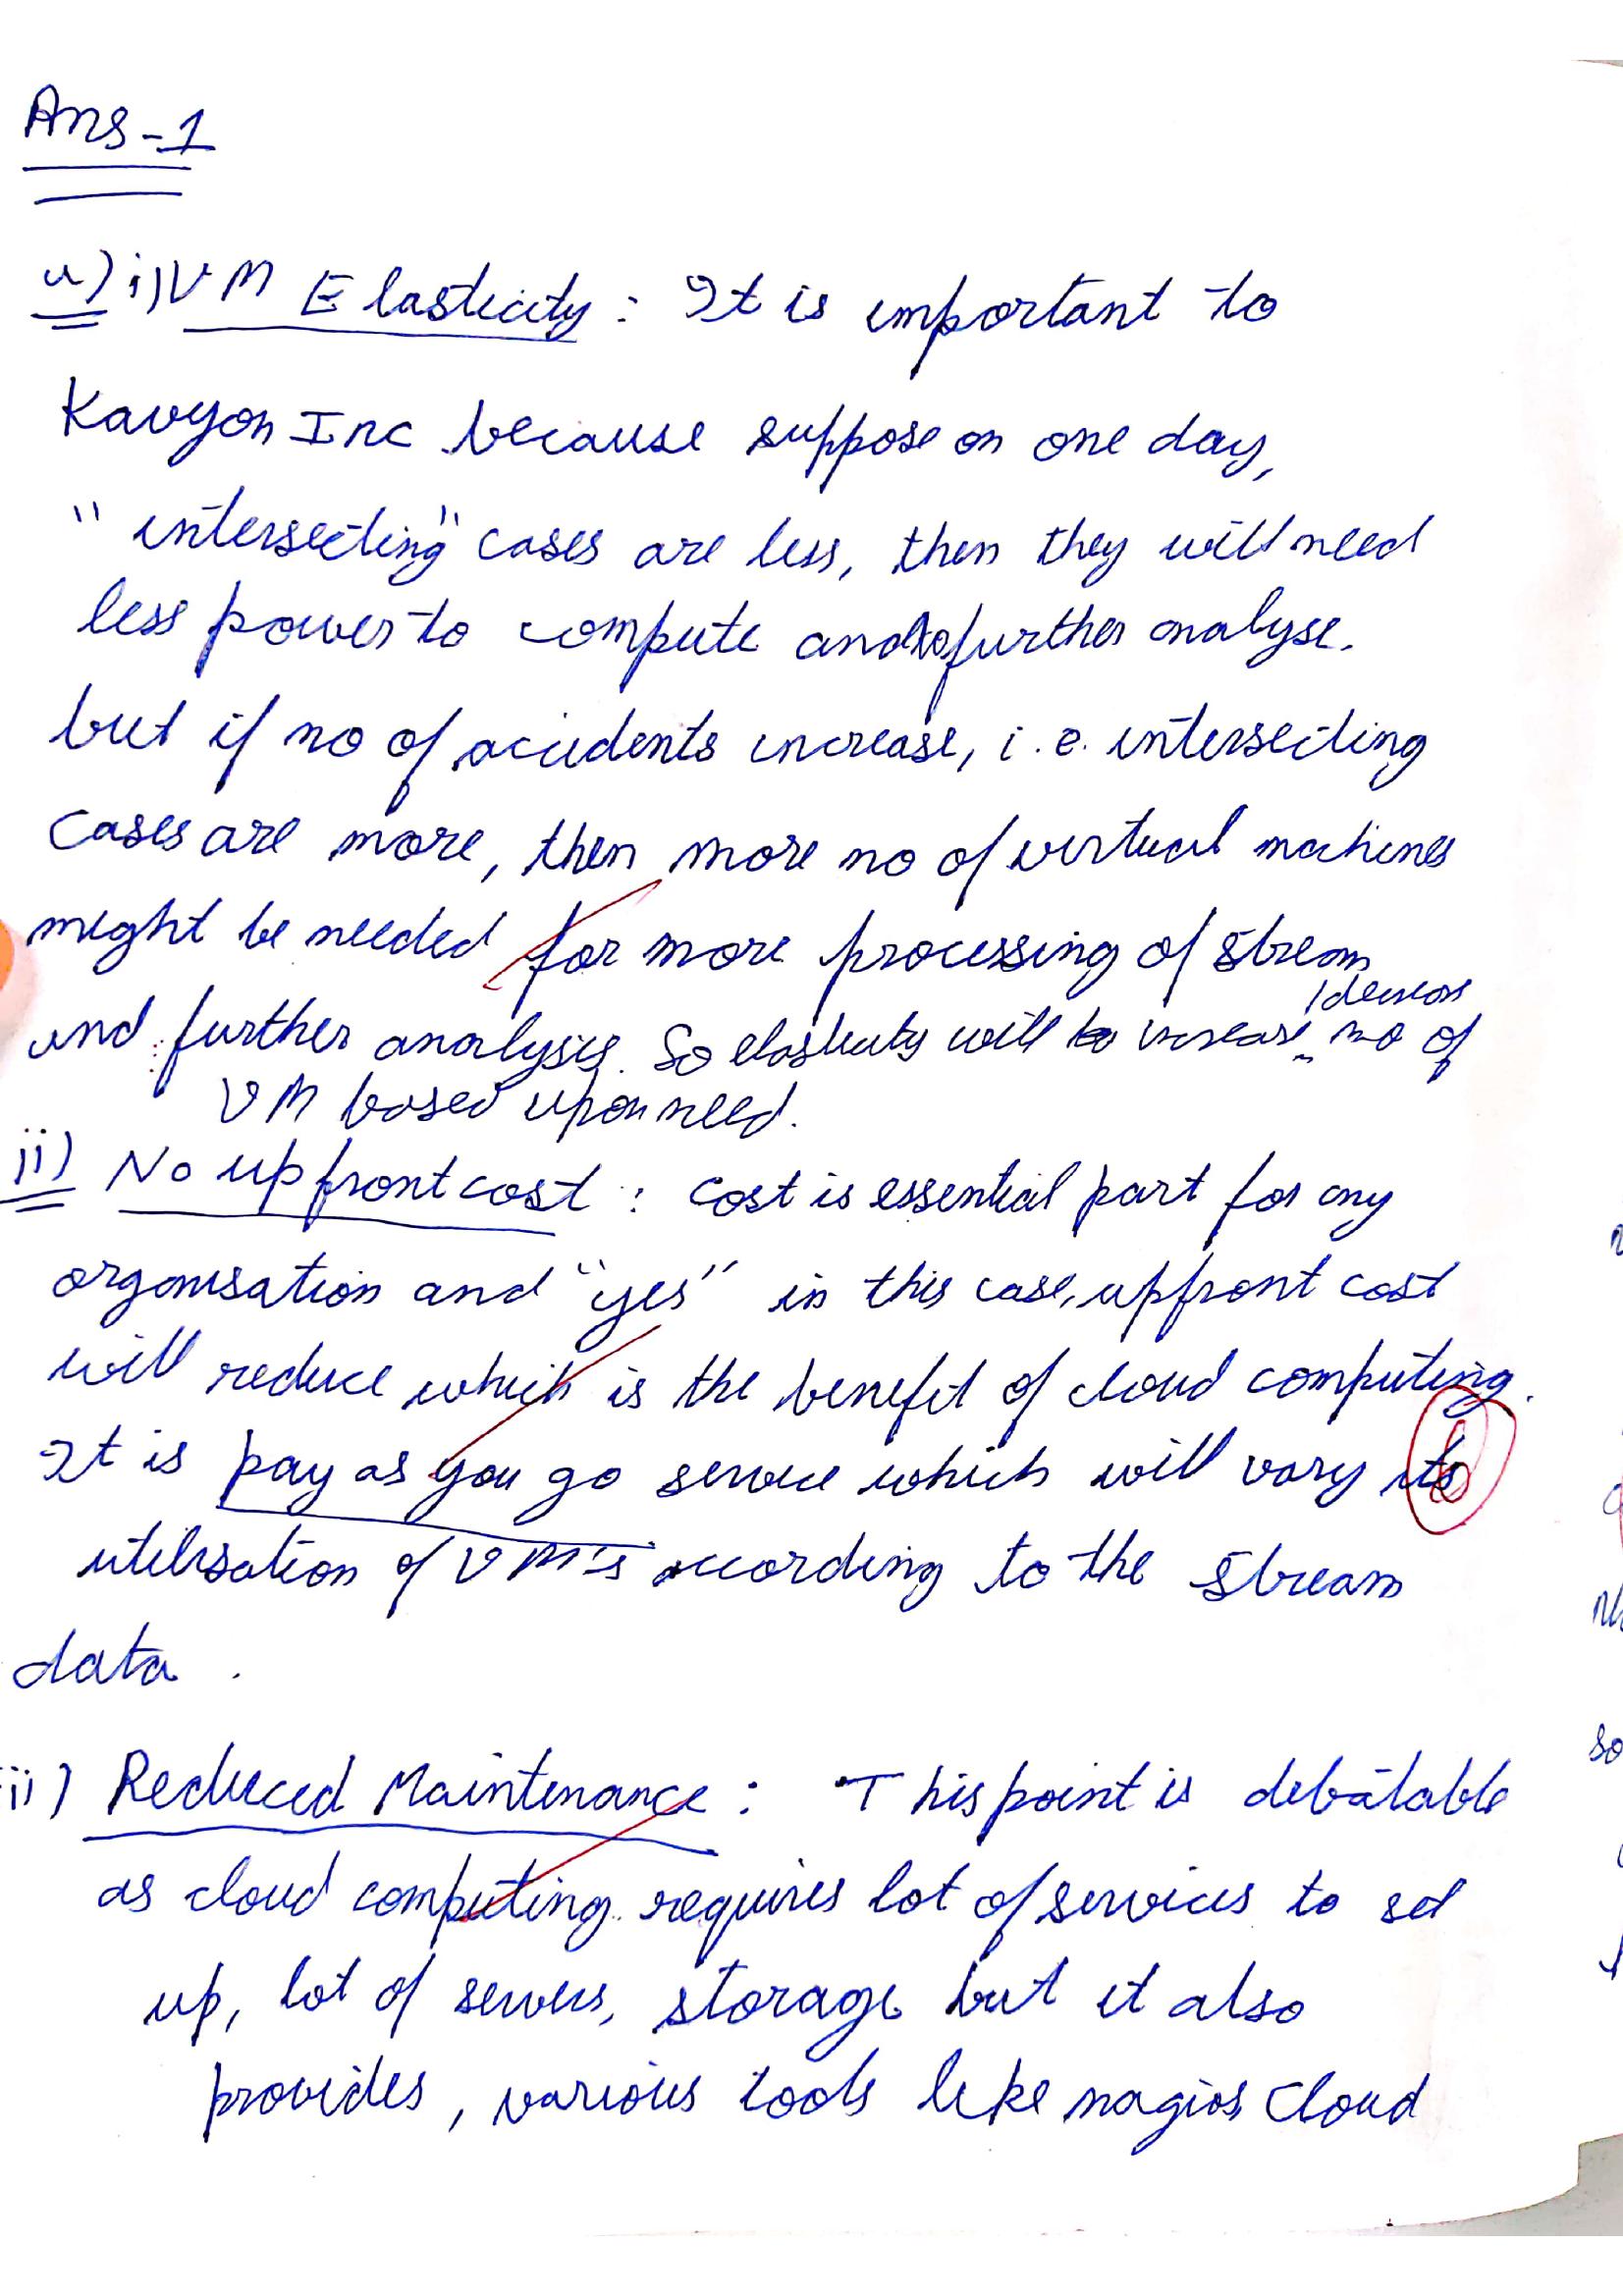 Ans-1
a) i) VM Elasticity : It is important to
Kavyon Inc because suppose on one day,
"intersecting" cases are less, then they will need
less power to compute and further analyse.
but if no of accidents increase, i.e. intersecting
cases are more, then more no of virtual machines
might be needed for more processing of stream
and further analysis. So elasticity will increase /decrease no of
VM based upon need.
ii) No upfront cost : Cost is essential part for any
organisation and "yes" in this case, upfront cost
will reduce which is the benefit of cloud computing.
It is pay as you go service which will vary its
utilisation of VM's according to the stream
data.
ii) Reduced Maintenance : This point is debatable
as cloud computing requires lot of services to set
up, lot of servers, storage but it also
provides, various tools like nagios, cloud